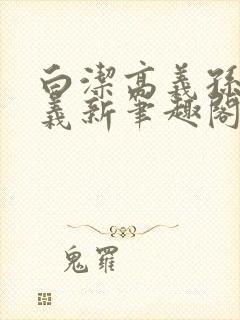 白潔高義孫
義新筆趣閣
鬼羅